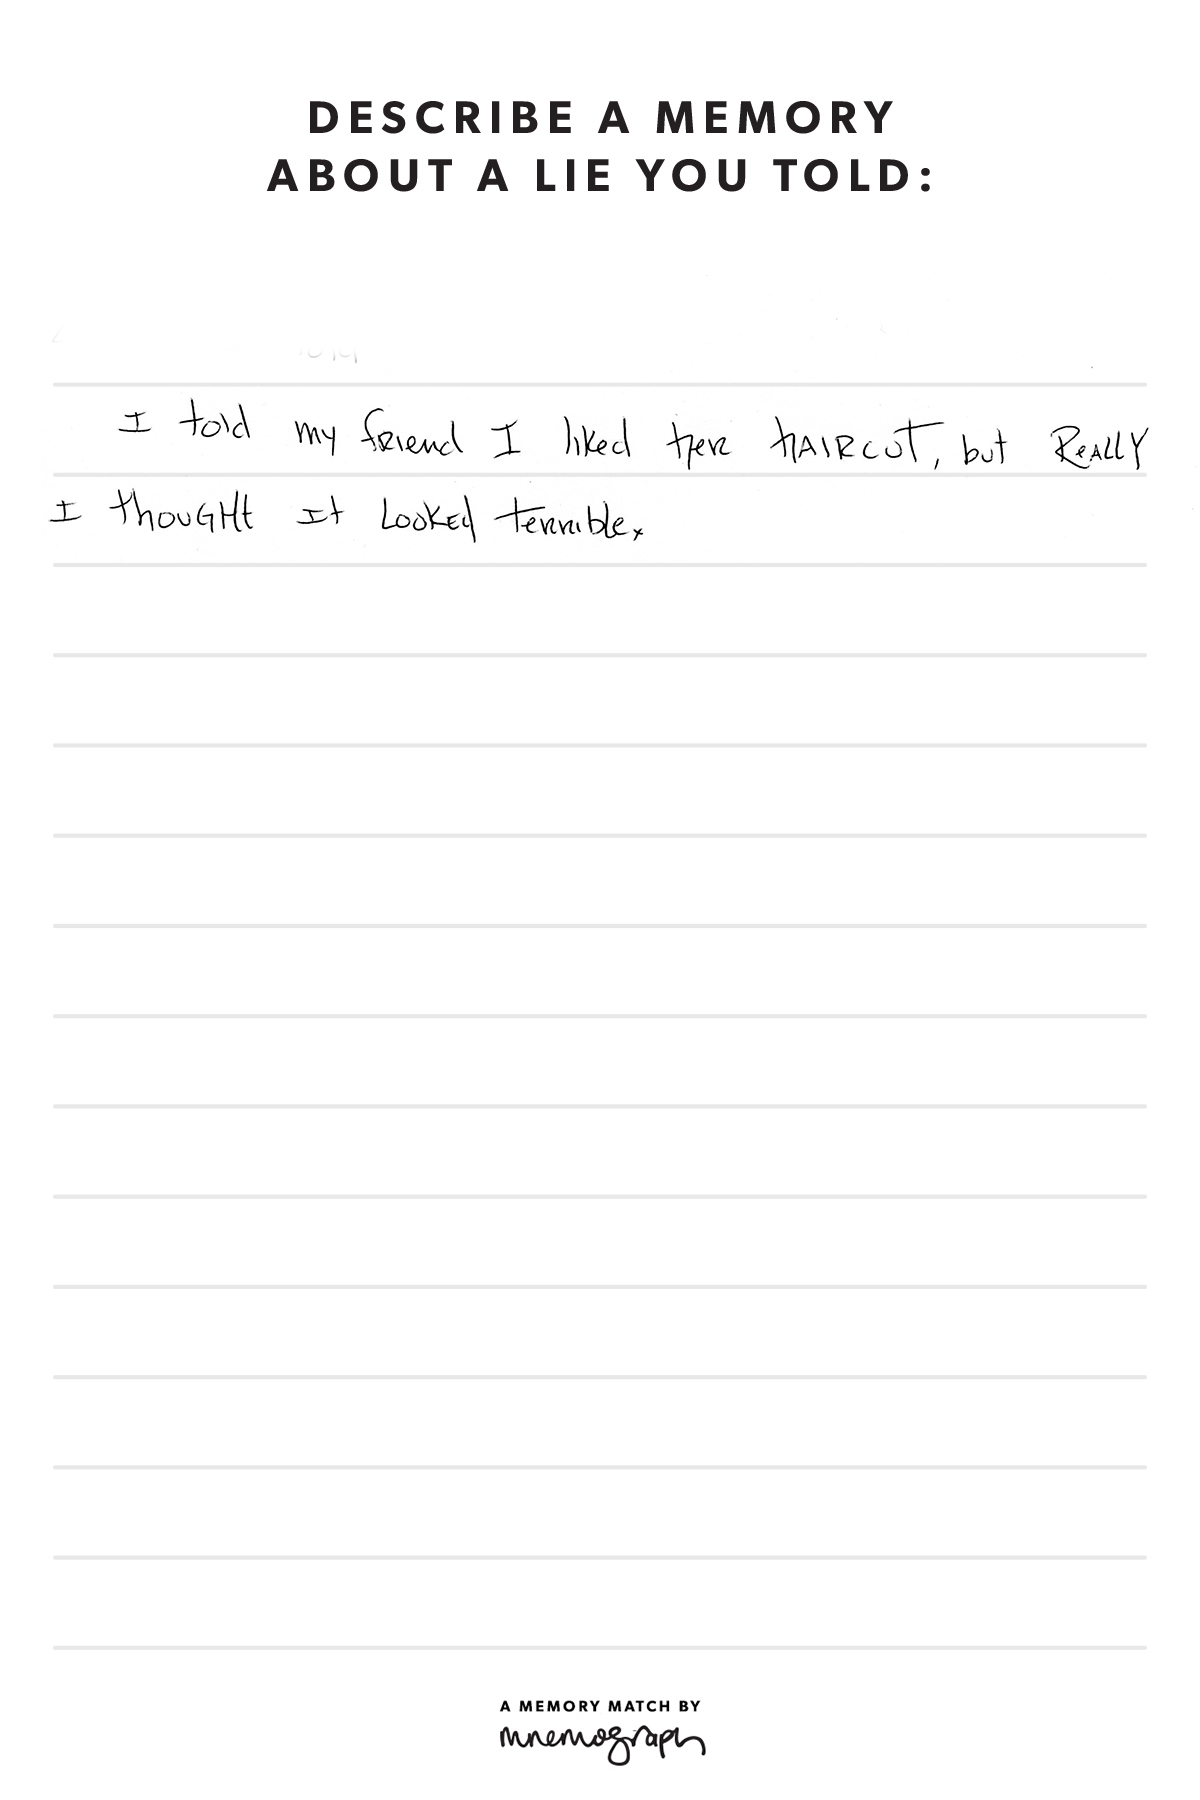 DESCRIBE A MEMORY
ABOUT A LIE YOU TOLD:
I told my friend I liked her HAIRCUT, but ReALLY
I thouGHt It LooKEd terrible.
A MEMORY MATCH BY
mnemograph